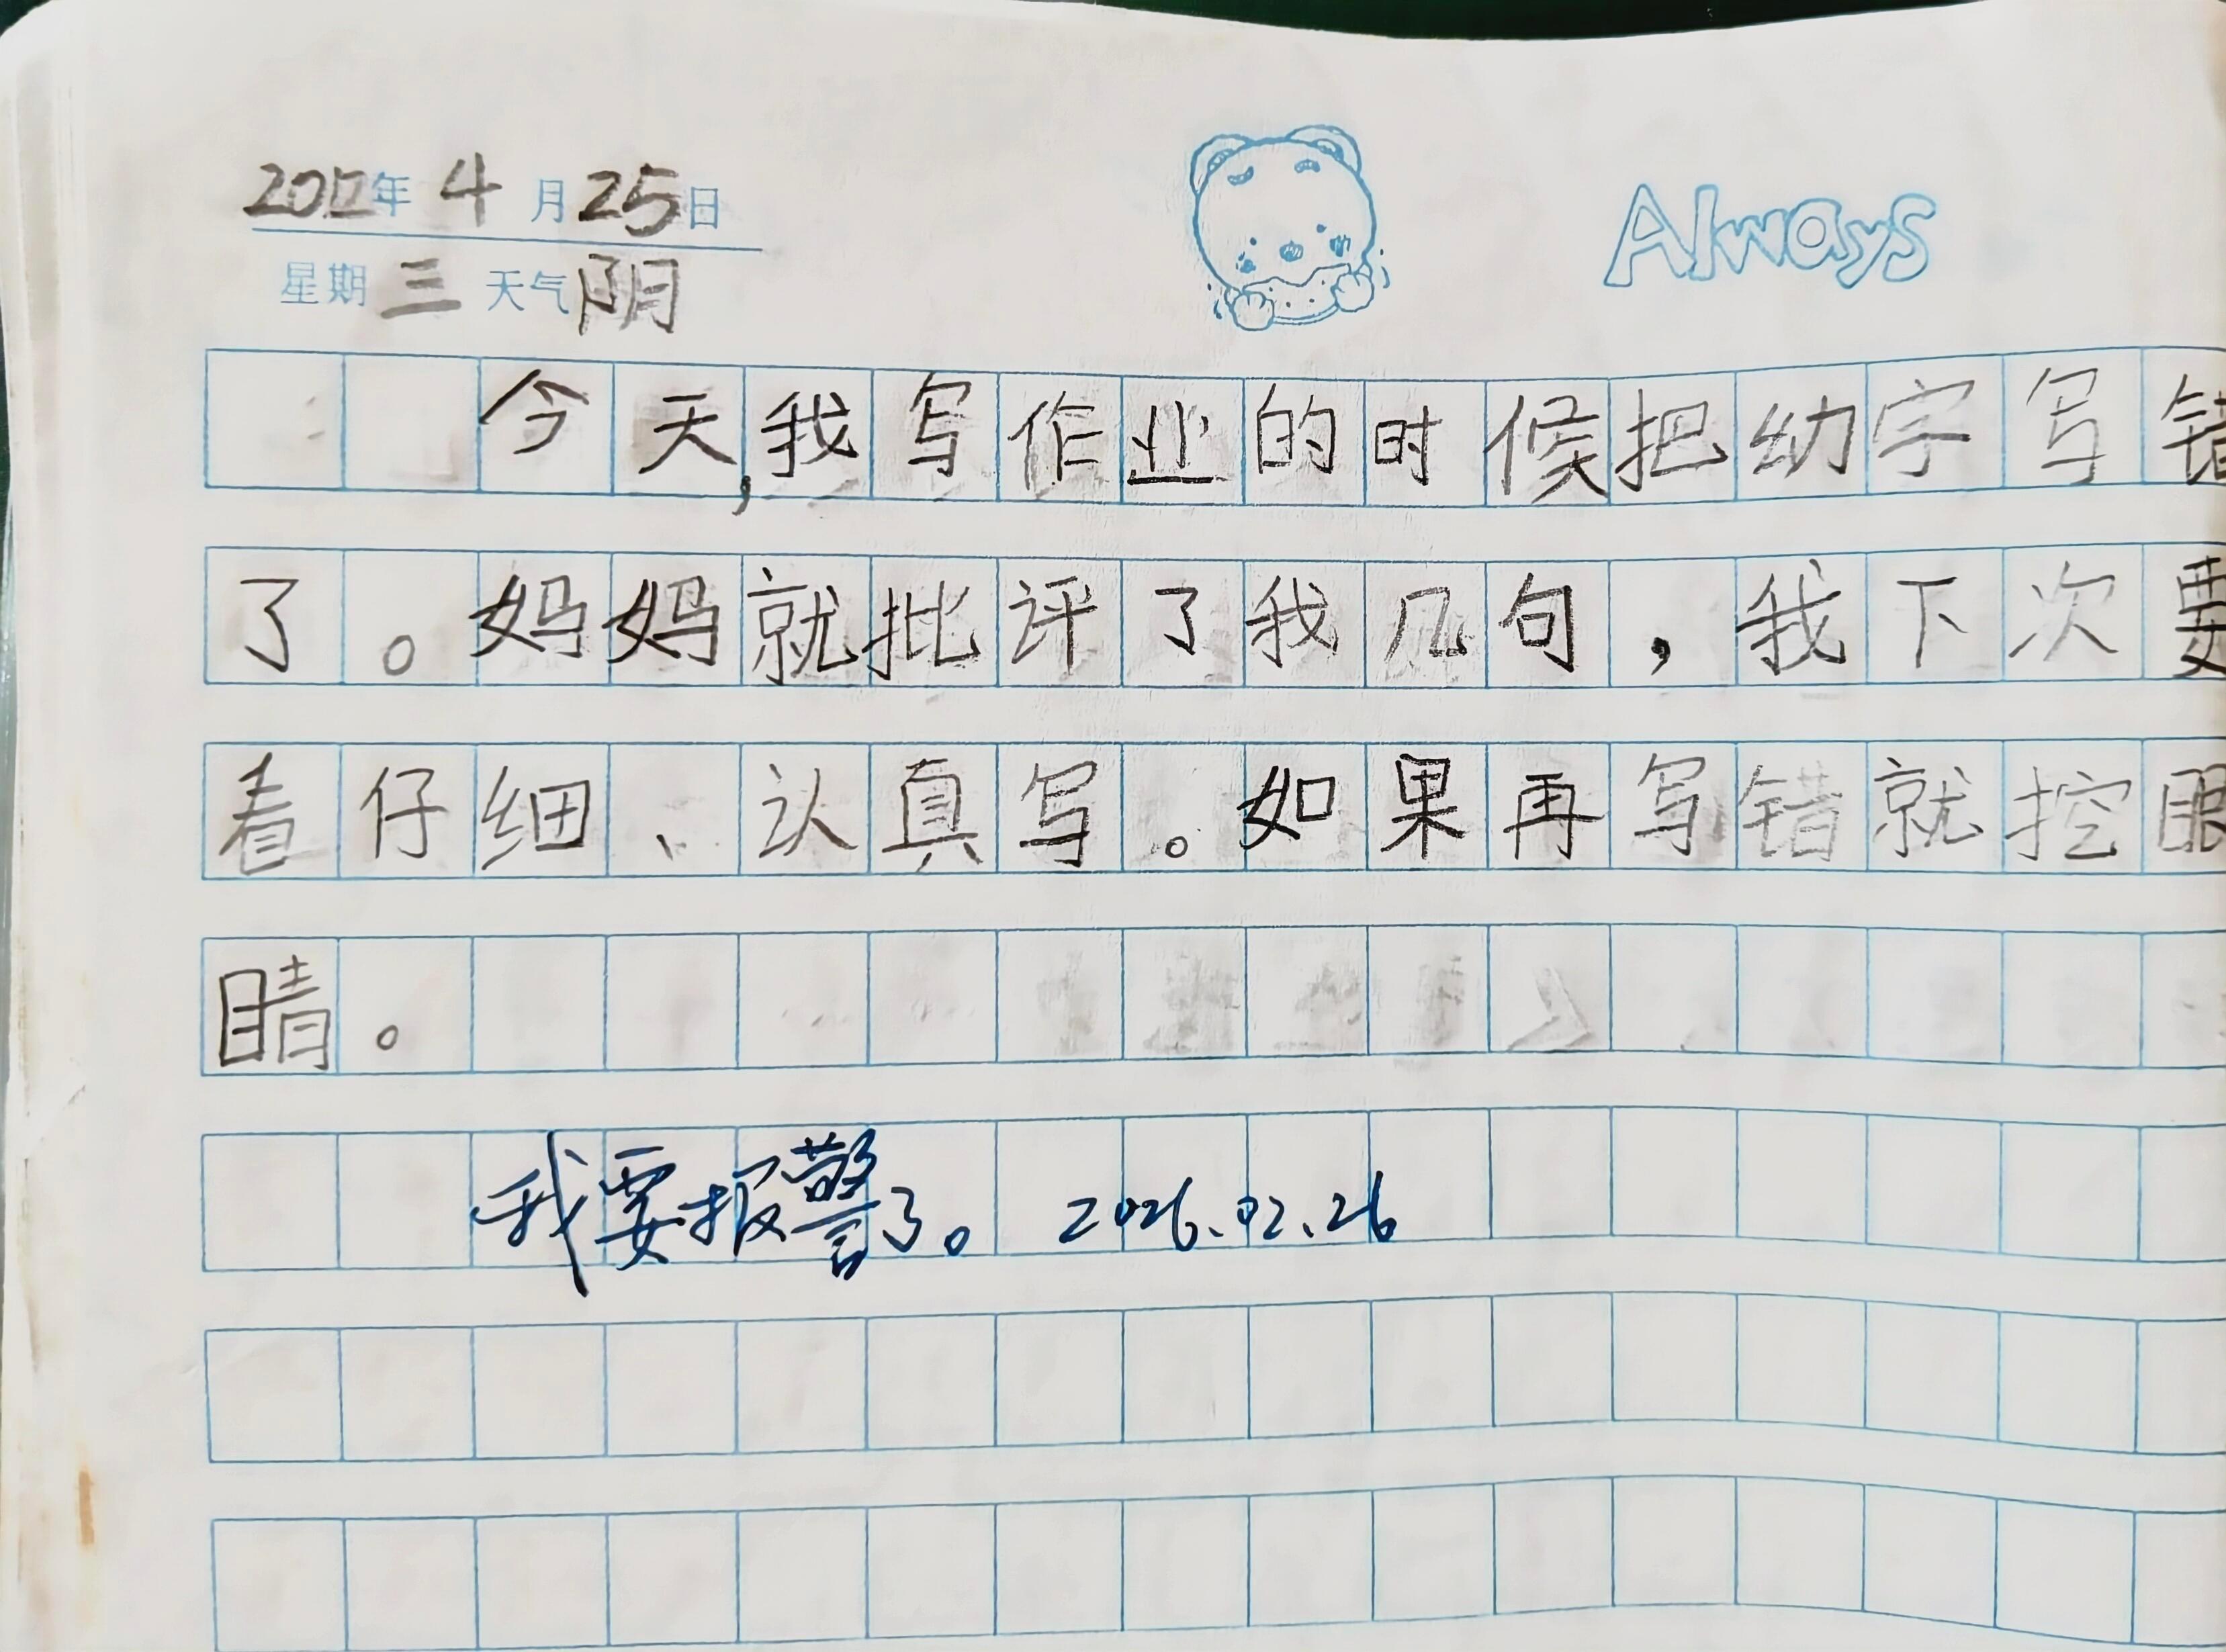 年 4 月 25 日
星期 三 天气 阴
Always
今天,我写作业的时候把幼字写错
了。妈妈就批评了我几句,我下次要
看仔细、认真写。如果再写错就挖眼
睛。
我要报警了。 2026.02.26